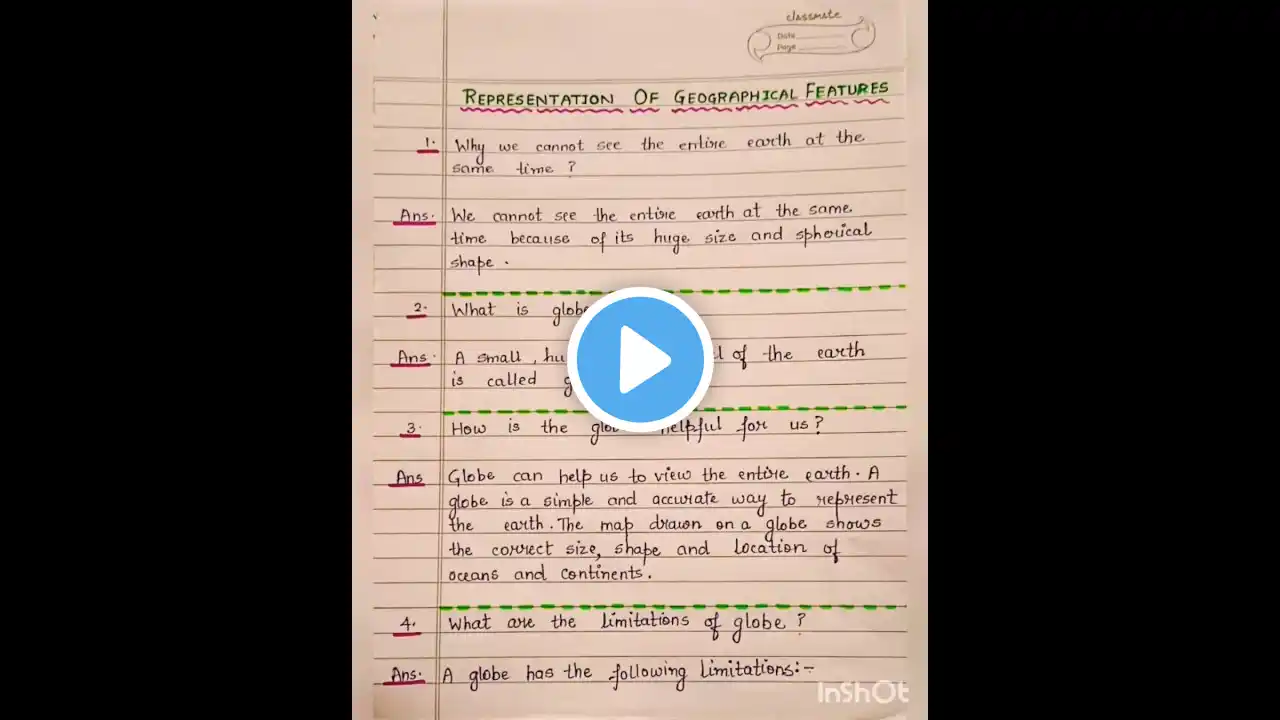 classmate
Date
Page
REPRESENTATION OF GEOGRAPHICAL FEATURES
1. Why we cannot see the entire earth at the
same time ?
Ans. We cannot see the entire earth at the same
time because of its huge size and spherical
shape .
2. What is
Ans. A small , of the earth
is called
3. How is the helpful for us?
Ans Globe can help us to view the entire earth. A
globe is a simple and accurate way to represent
the earth. The map drawn on a globe shows
the correct size, shape and location of
oceans and continents.
4. What are the limitations of globe ?
Ans. A globe has the following limitations:-
InShOt